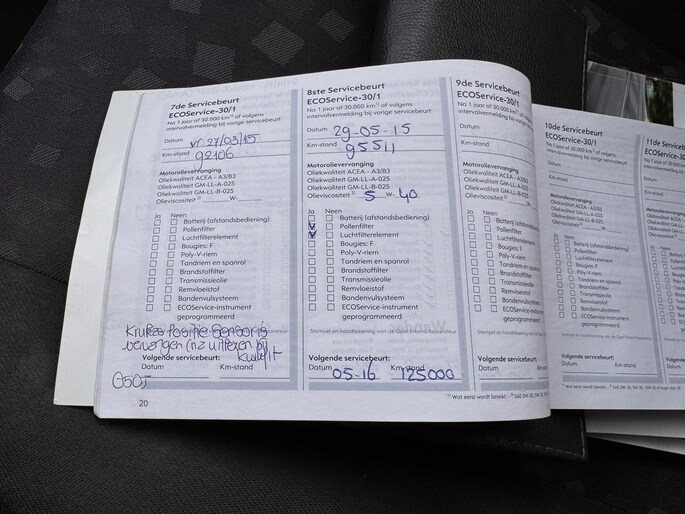 7de Servicebeurt
ECOService-30/1
Na 1 jaar of 30.000 km¹⁾ of volgens
intervalvermelding bij vorige servicebeurt
Datum vr 27/03/15
Km-stand 92106
Motorolieverversing
Oliekwaliteit ACEA - A3/B3
Oliekwaliteit GM-LL-A-025
Oliekwaliteit GM-LL-B-025
Olieviscositeit ²⁾ W-
Ja Neen
Batterij (afstandsbediening)
Pollenfilter
Luchtfilterelement
Bougies: F
Poly-V-riem
Tandriem en spanrol
Brandstoffilter
Transmissieolie
Remvloeistof
Bandenvulsysteem
ECOService-instrument
geprogrammeerd
Krukas Positie Sensor is
vervangen
Volgende servicebeurt:
Datum Km-stand
20
8ste Servicebeurt
ECOService-30/1
Na 1 jaar of 30.000 km¹⁾ of volgens
intervalvermelding bij vorige servicebeurt
Datum 29-05-15
Km-stand 95511
Motorolieverversing
Oliekwaliteit ACEA - A3/B3
Oliekwaliteit GM-LL-A-025
Oliekwaliteit GM-LL-B-025
Olieviscositeit ²⁾ 5 W- 40
Ja Neen
Batterij (afstandsbediening)
Pollenfilter
Luchtfilterelement
Bougies: F
Poly-V-riem
Tandriem en spanrol
Brandstoffilter
Transmissieolie
Remvloeistof
Bandenvulsysteem
ECOService-instrument
geprogrammeerd
Stempel en handtekening van de Opel Erkend Reparateur
Volgende servicebeurt:
Datum 05-16 Km-stand 125000
¹⁾ Wat eerst wordt bereikt
9de Servicebeurt
ECOService-30/1
Na 1 jaar of 30.000 km¹⁾ of volgens
intervalvermelding bij vorige servicebeurt
Datum
Km-stand
Motorolieverversing
Oliekwaliteit ACEA - A3/B3
Oliekwaliteit GM-LL-A-025
Oliekwaliteit GM-LL-B-025
Olieviscositeit ²⁾
Ja Neen
Batterij (afstandsbediening)
Pollenfilter
Luchtfilterelement
Bougies: F
Poly-V-riem
Tandriem en spanrol
Brandstoffilter
Transmissieolie
Remvloeistof
Bandenvulsysteem
ECOService-instrument
geprogrammeerd
Volgende servicebeurt:
Datum Km-stand
10de Servicebeurt
ECOService-30/1
Na 1 jaar of 30.000 km¹⁾ of volgens
intervalvermelding bij vorige servicebeurt
Datum
Km-stand
Motorolieverversing
Oliekwaliteit ACEA - A3/B3
Oliekwaliteit GM-LL-A-025
Oliekwaliteit GM-LL-B-025
Olieviscositeit ²⁾
Ja Neen
Batterij (afstandsbediening)
Pollenfilter
Luchtfilterelement
Bougies: F
Poly-V-riem
Tandriem en spanrol
Brandstoffilter
Transmissieolie
Remvloeistof
Bandenvulsysteem
ECOService-instrument
geprogrammeerd
Volgende servicebeurt:
Datum Km-stand
11de Servicebeurt
ECOService-30/1
Datum
Km-stand
Motorolieverversing
Ja Neen